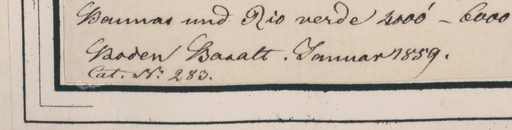 Baunas und Rio verde 2000' – 6000
Boden Basalt. Januar 1859.
Cat. No 283.